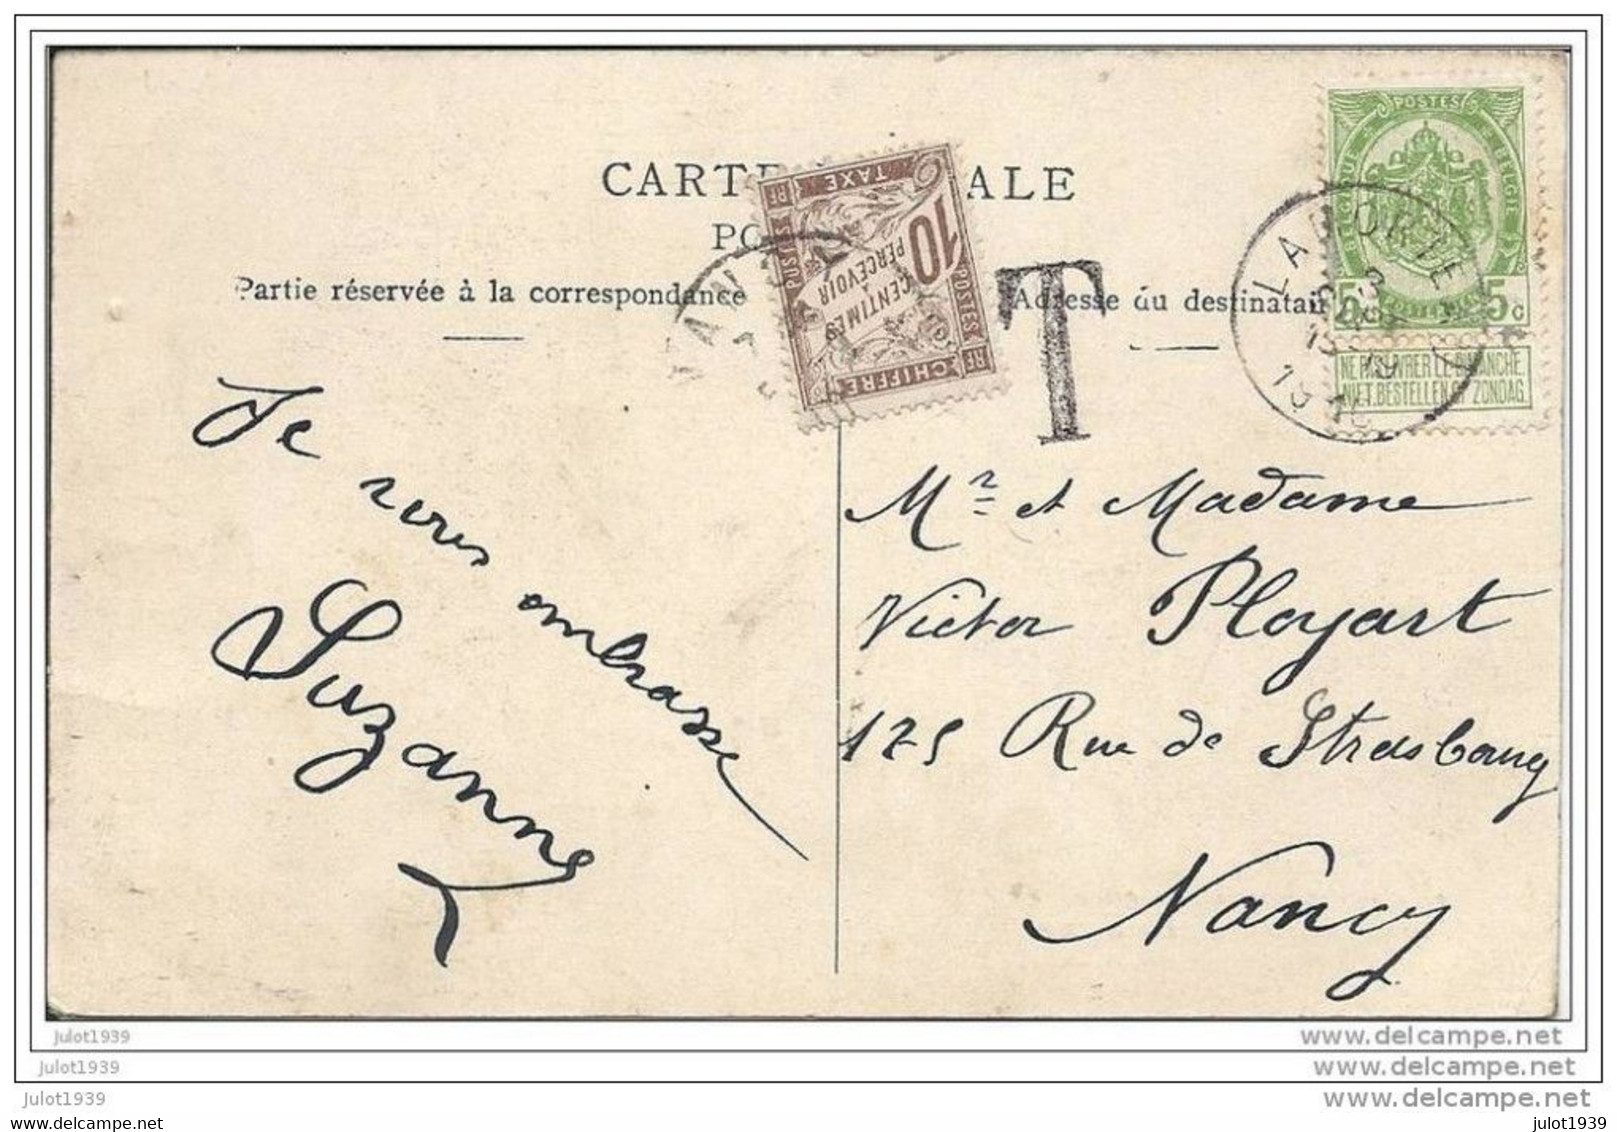 CARTE ALE
PO
Partie réservée à la correspondance
Adresse du destinatai
TAXE
10
CENTIMES
PERCEVOIR
POSTES
CHIFFRE
RF
RF
T
POSTES
BELGIQUE
BELGIË
5 5c
NE PAS LIVRER LE DIMANCHE
NIET BESTELLEN OP ZONDAG
Je vous embrasse
Suzanne
Mr et Madame
Victor Ployart
175 Rue de Strasbourg
Nancy
julot1939
www.delcampe.net
julot1939
www.delcampe.net
julot1939
www.delcampe.net
julot1939
julot1939